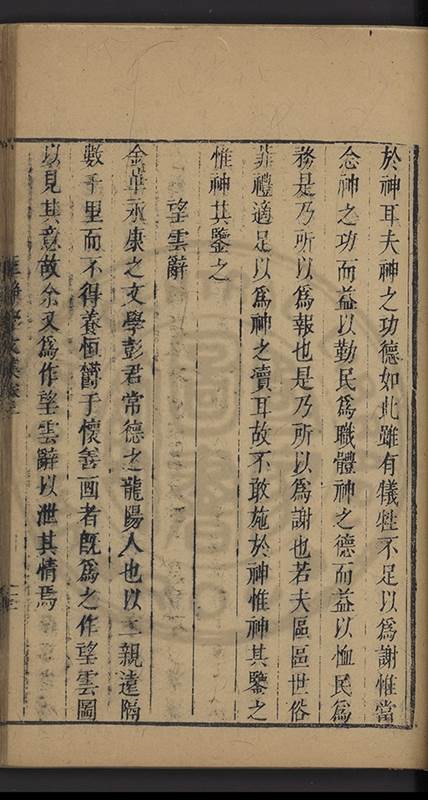 於神耳夫神之功德如此雖有犧牲不足以爲謝惟當
念神之功而益以勤民爲職體神之德而益以恤民爲
務是乃所以爲報也是乃所以爲謝也若夫區區世俗
非禮適足以爲神之瀆耳故不敢施於神惟神其鑒之
惟神其鑒之
望雲辭
金華永康之文學彭君常德之龍陽人也以二親遠隔
數千里而不得養恒欝于懷善畫者旣爲之作望雲圖
以見其意故余又爲作望雲辭以泄其情焉